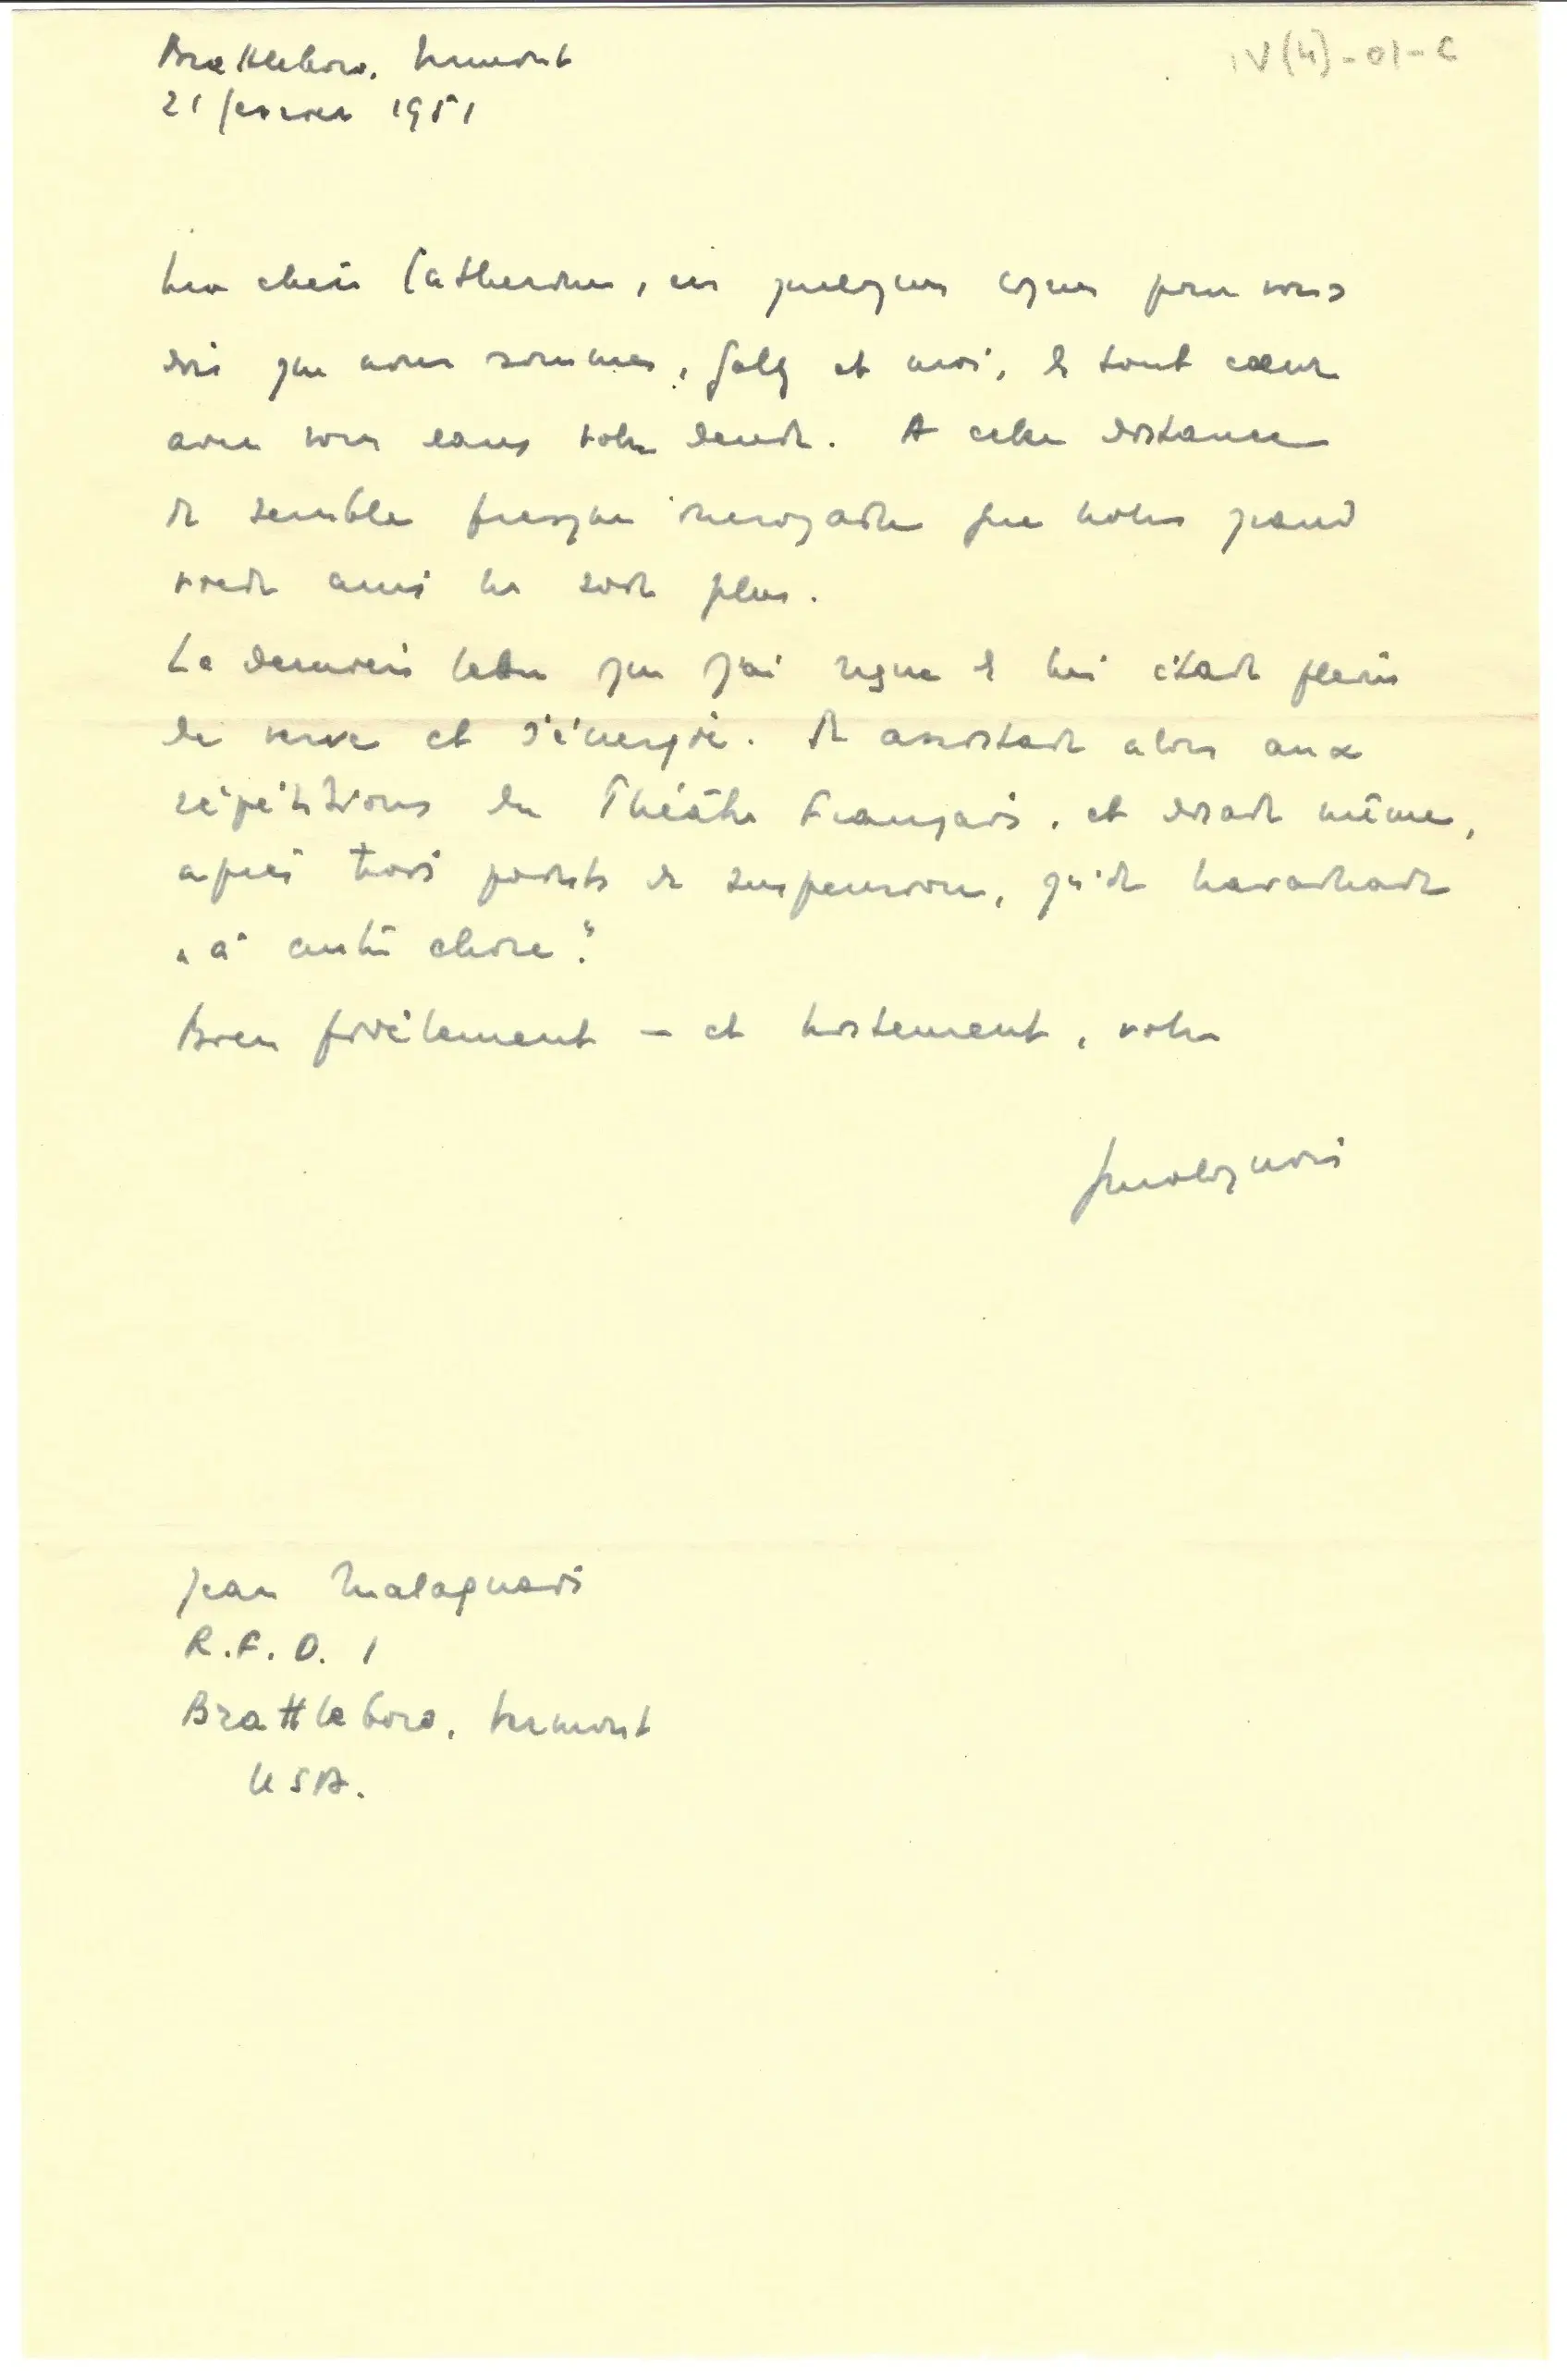 Brattleboro, Vermont
IV(4)-01-C
21 février 1951
Ma chère Catherine, ces quelques lignes pour vous
dire que nous sommes, Galy et moi, de tout cœur
avec vous dans votre deuil. A cette distance
il semble presque incroyable que notre grand
vieil ami ne soit plus.
La dernière lettre que j'ai reçue de lui était pleine
de verve et d'énergie. Il assistait alors aux
répétitions du Théâtre Français, et disait même,
après trois points de suspension, qu'il travaillait
"à autre chose".
Bien fidèlement – et tristement, votre
Malaquais
Jean Malaquais
R.F.D. 1
Brattleboro, Vermont
USA.